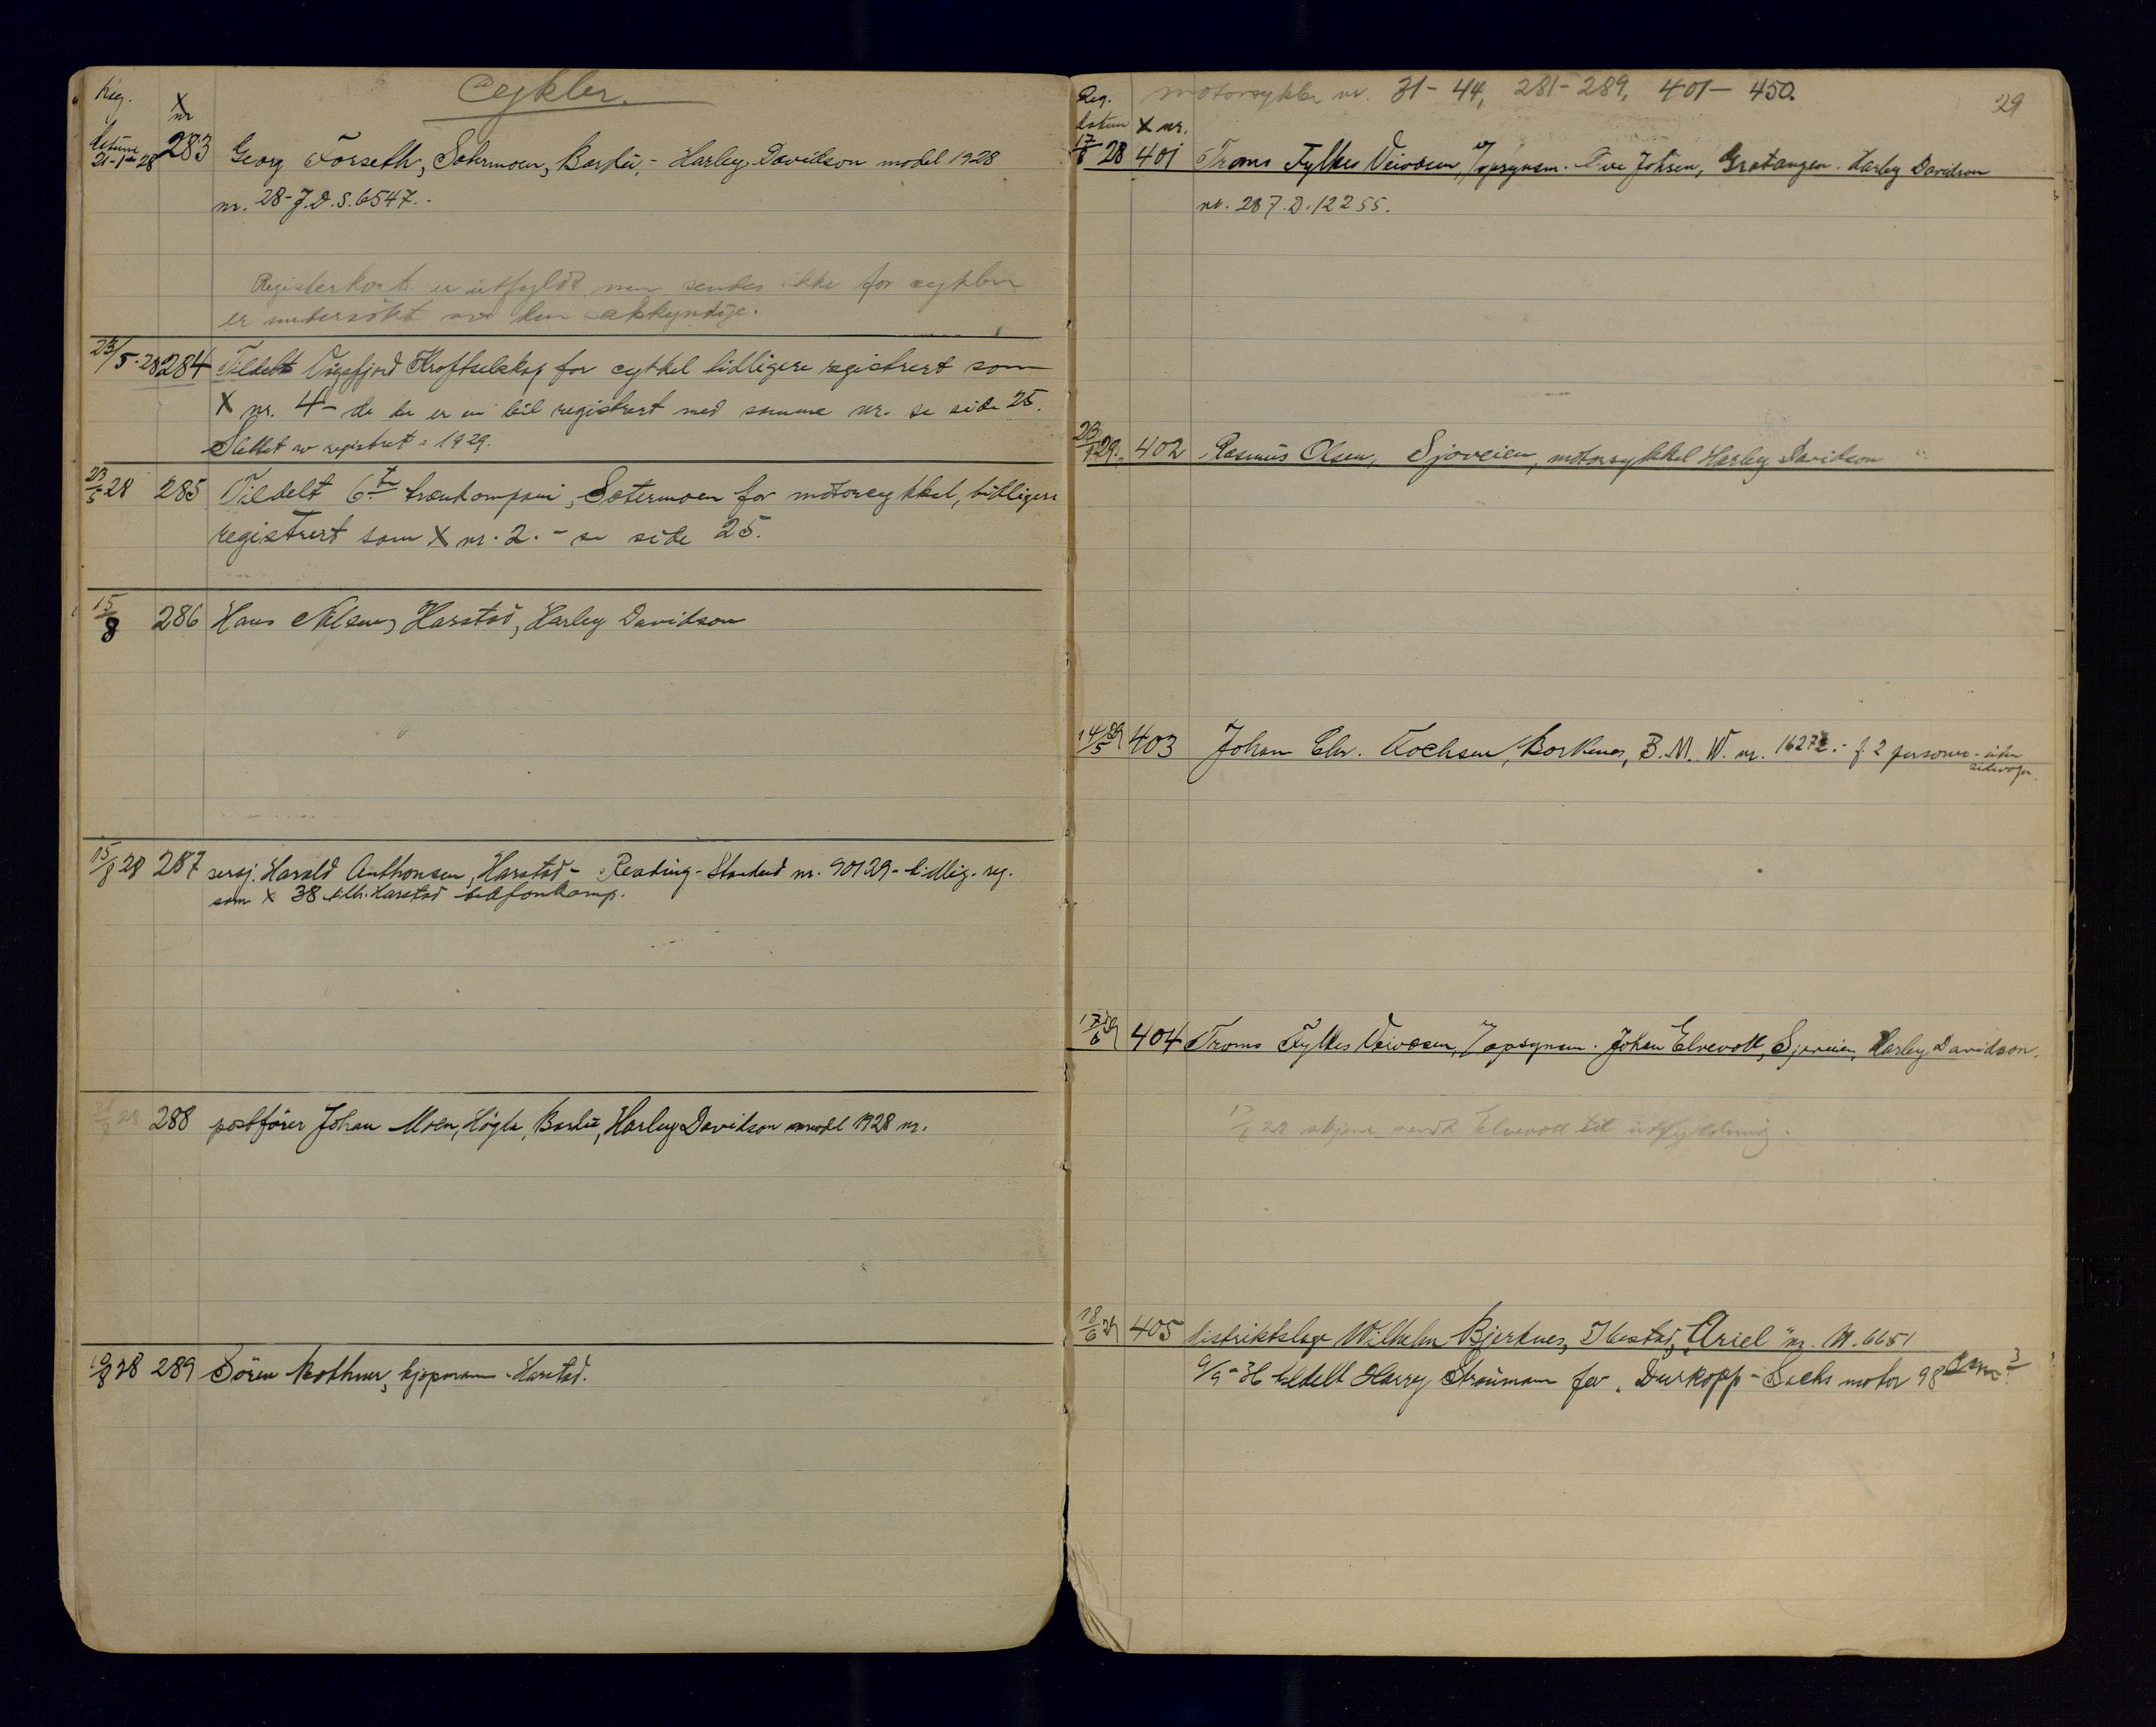 Cykler.
Reg. datum
X nr
21-1-28 283 Georg Forseth, Setermoen, Bardu, - Harley Davidson model 1928
nr. 28-J.D.S.6547.
Registerkort er utfyldt men sendes ikke før cyklen
er undersökt av den sakkyndige.
23/5-28 284 Tildelt Vågsfjord Kraftselskap for cykkel tidligere registrert som
X nr. 4 - da der er en bil registrert med samme nr. se side 25.
Slettet av registret 1929.
23/5 28 285 Tildelt 6te trænkompani, Setermoen for motorcykkel, tidligere
registrert som X nr. 2. - se side 25.
15/8 286 Hans Nilsen, Harstad, Harley Davidson
15/8 28 287 sersj. Harald Anthonsen, Harstad - Reading-Standard nr. 90129 - tidlig. reg.
som X 38 tilh. Harstad telefonkomp.
28 288 postförer Johan Moen, Högda, Bardu, Harley Davidson model 1928 nr.
10/8 28 289 Sören Kothner, kjøpmann Harstad.
29
motorsykler nr. 31-44, 281-289, 401-450.
Reg. datum X nr.
17/8 28 401 Troms Fylkes Veivæsen, v/opsynsm. Johsen, Gratangen. Harley Davidson
nr. 28 J.D.12255.
23/4 29. 402 Rasmus Olsen, Sjøveien, motorsykkel Harley Davidson
14/5 29 403 Johan Chr. Kochsen, Borkenes, B.M.W. nr. 16272. - f. 2 personer - uten
sidevogn.
17/6 29 404 Troms Fylkes Veivæsen, v/opsynsm. Johan Elvevoll, Sjøveien, Harley Davidson.
17/6 29 skjema sendt Elvevoll til utfyldning.
18/6 29 405 distriktslæge Wilhelm Bjerknes, Ibestad, "Ariel" nr. M.6651
9/9-36 tildelt Harry Straumann for "Durkopp - Sachs motor 98 cm3.